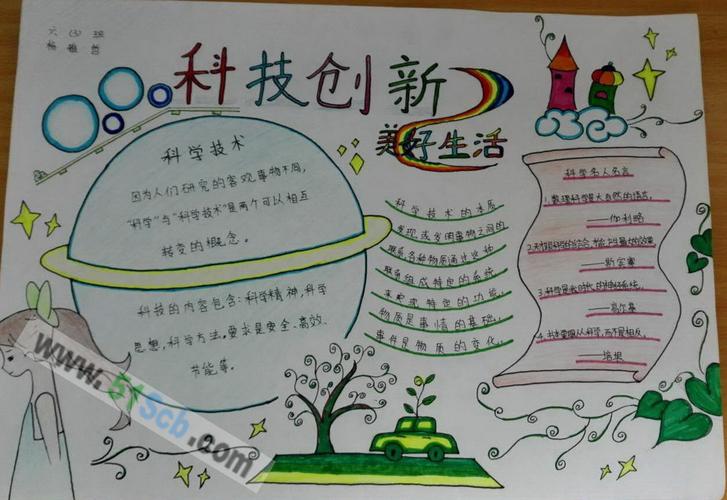 六（3）班
科技创新
美好生活
科学技术
因为人们研究的客观事物不同，
"科学"与"科学技术"是两个可以相互
转变的概念。
科技的内容包含：科学精神，科学
思想，科学方法。要求是安全、高效、
节能等。
科学技术的本质
发现或发明事物之间的
联系各种物质通过这种
联系组成特定的系统，
来实现特定的功能，
物质是事情的基础，
事件是物质的变化。
科学名人名言
1.数理科学是大自然的语言。
——伽利略
——斯宾塞
3.科学是我时代的神经系统。
——高尔基
4.书本要从科学，而不是相反。
——培根
www.51Scb.com